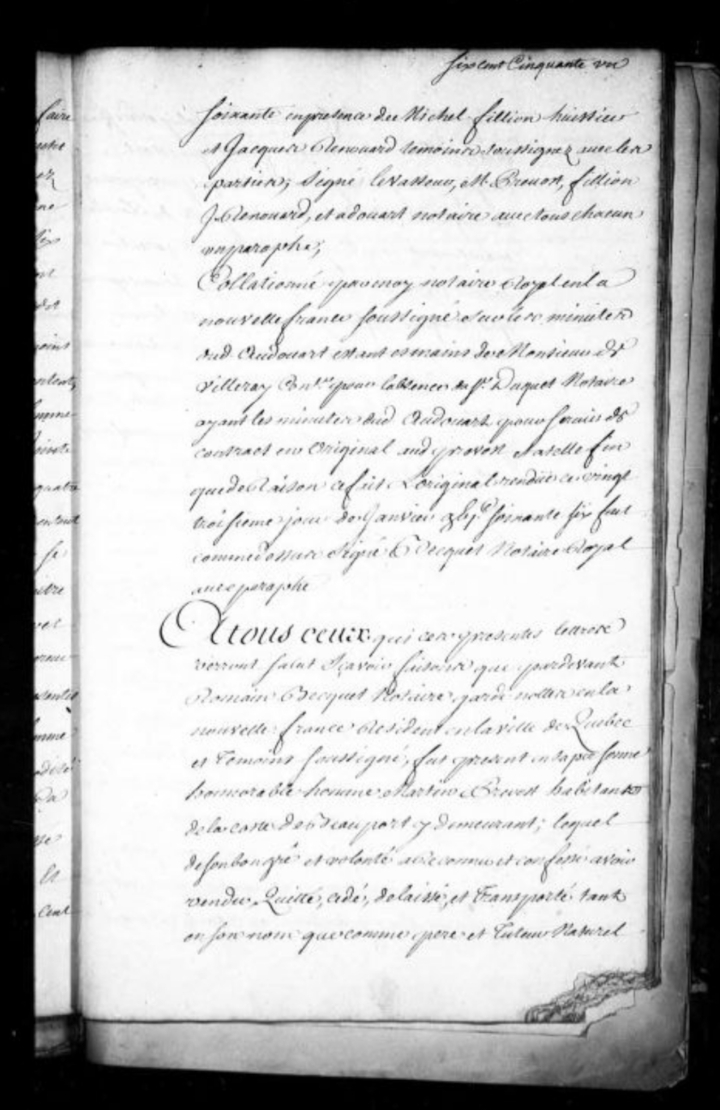 six cent Cinquante un
soixante en presence de Michel fillion huissier
et Jacques Renouard temoins soussignez avec les
parties; signé levasseur, M. Prevost, fillion
J. Renouard, et adouart notaire avec tous chacun
un paraphe;
Collationné par moy notaire Royal en la
nouvelle france soussigné sur les minutes
dud. Audouart estant es mains de Monsieur de
Villeray pour labsence du Sr. Duquet Notaire
ayant les minutes dud Audouart pour servir de
contract en Original aud prevost et a telle fin
que de Raison ce fait Loriginal rendu ce vingt
troisieme jour de Janvier soixante six
comme dessus signé Becquet Notaire Royal
avec paraphe
A tous ceux qui ces presentes lettres
verront salut sçavoir faisons que pardevant
Romain Becquet Notaire garde nottes en la
nouvelle france Resident en la ville de Quebec
et Temoins soussigné, fut present en sa personne
honnorable homme Martin Prevost habitant
de la coste de Beauport y demeurant; lequel
de son bon gré et volonté a Reconnu et confessé avoir
vendu, Quitté, cedé, delaissé, et Transporté tant
en son nom que comme pere et Tuteur Naturel
faire
gnatre
cent